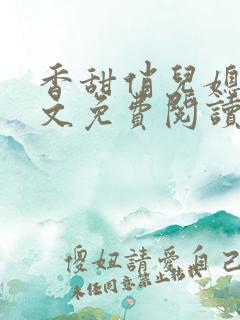 香甜俏兒媳
文免費閱讀
傻妞請愛自己
未任同意禁止轉載